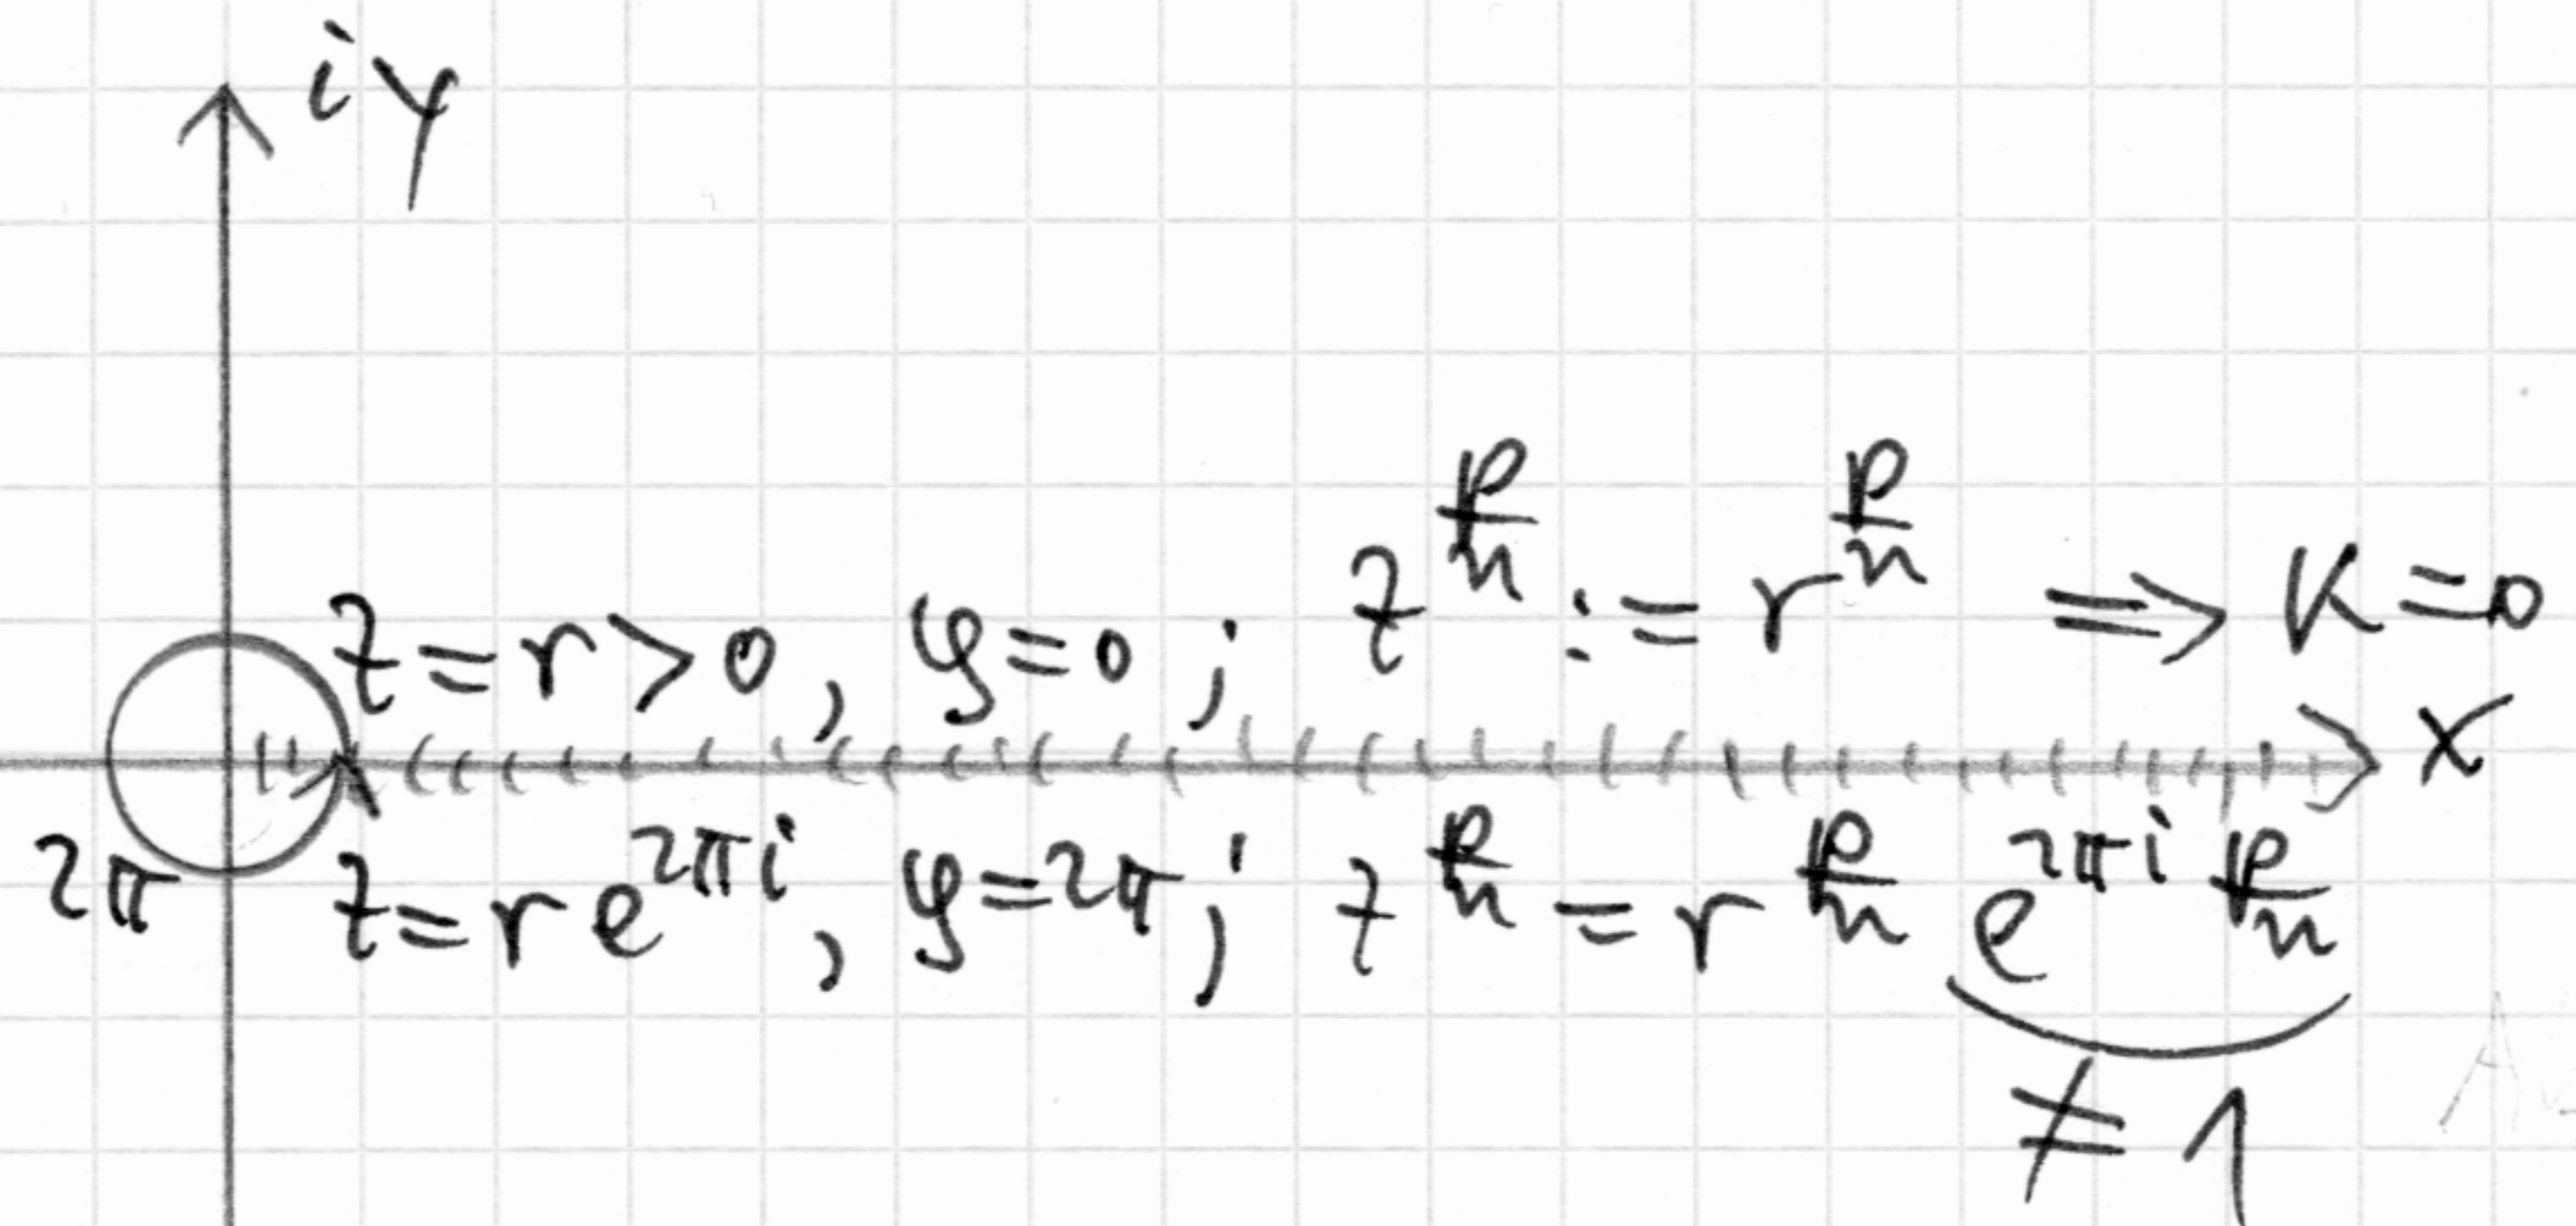 iy
z = r > 0, φ = 0; z^{p/n} := r^{p/n} ⇒ k = 0
x
2π
z = r e^{2πi}, φ = 2π; z^{p/n} = r^{p/n} e^{2πi p/n}
≠ 1